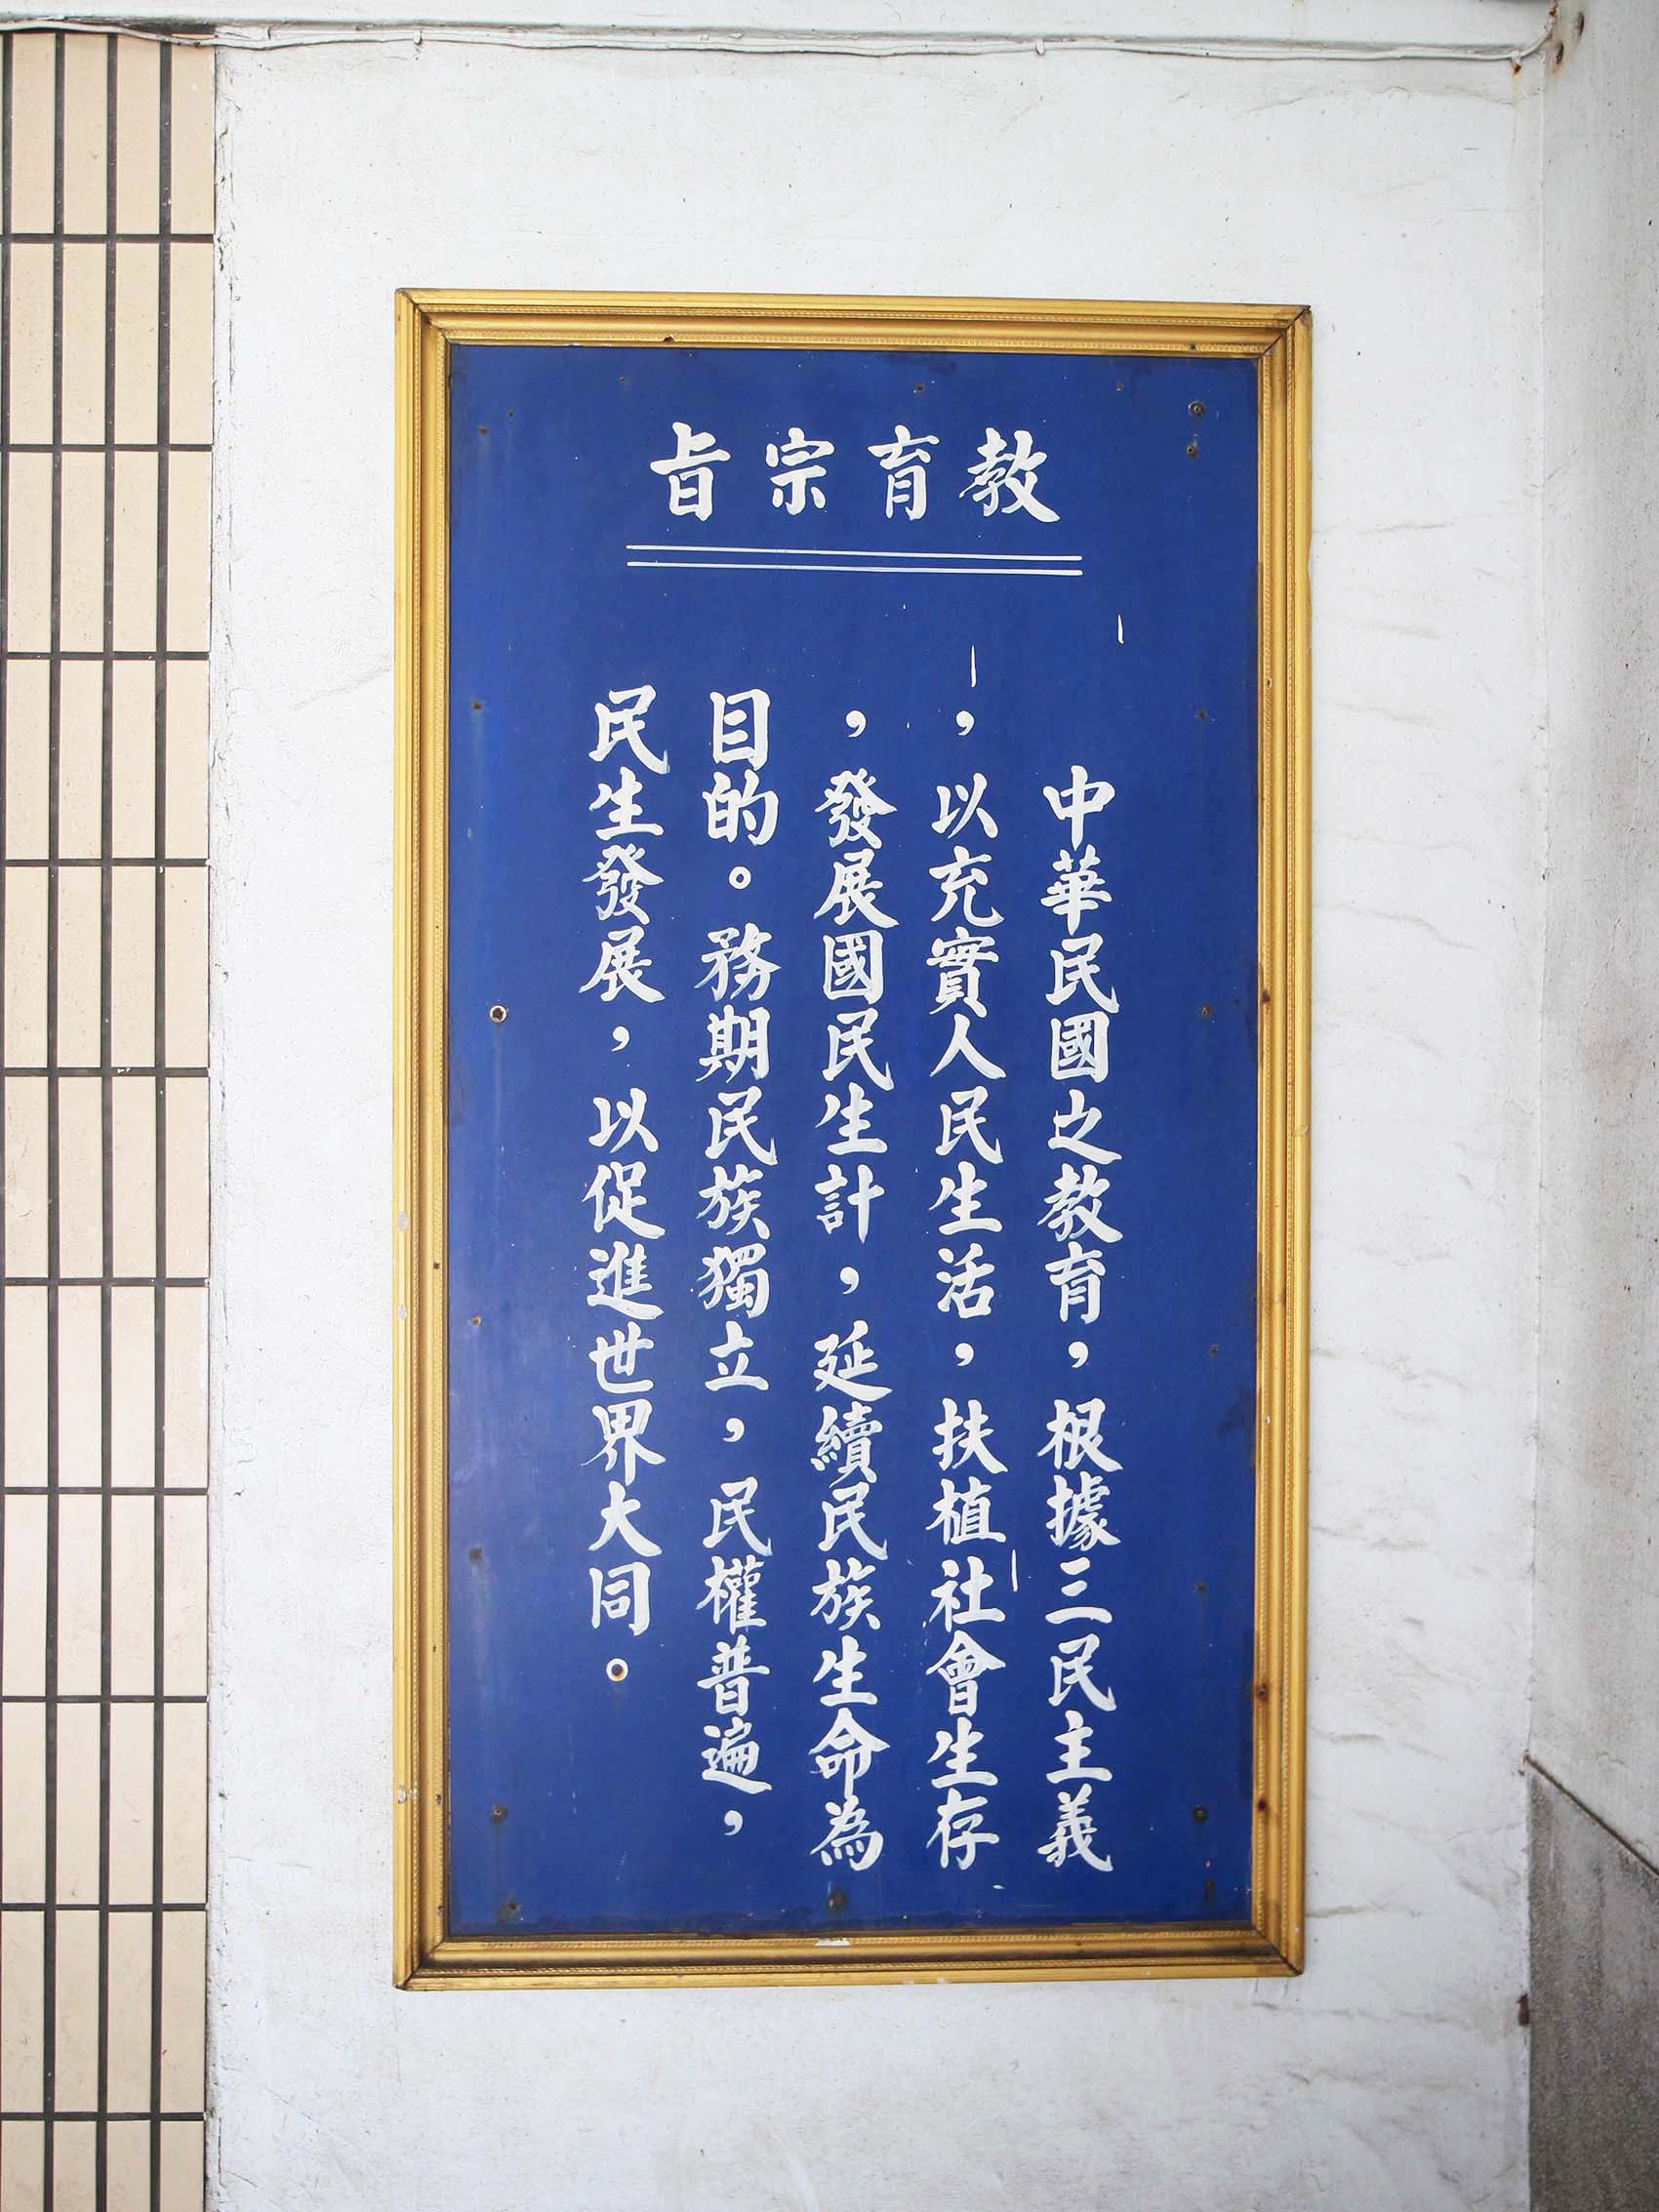 教育宗旨
中華民國之教育，根據三民主義
，以充實人民生活，扶植社會生存
，發展國民生計，延續民族生命為
目的。務期民族獨立，民權普遍，
民生發展，以促進世界大同。